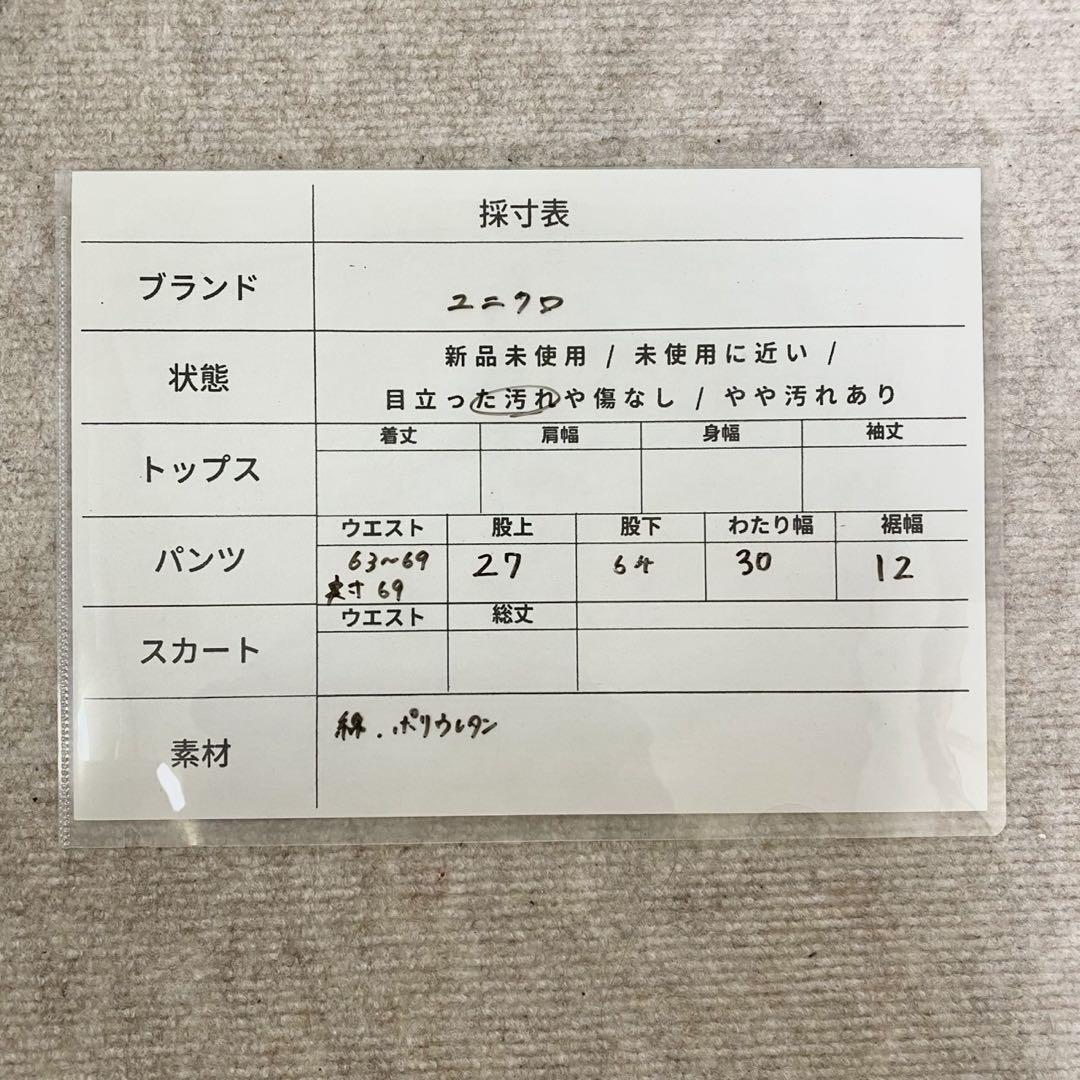 採寸表
ブランド
ユニクロ
状態
新品未使用 / 未使用に近い /
目立った汚れや傷なし / やや汚れあり
トップス
着丈 肩幅 身幅 袖丈
パンツ
ウエスト 股上 股下 わたり幅 裾幅
63~69 27 64 30 12
実寸 69
スカート
ウエスト 総丈
素材
綿.ポリウレタン